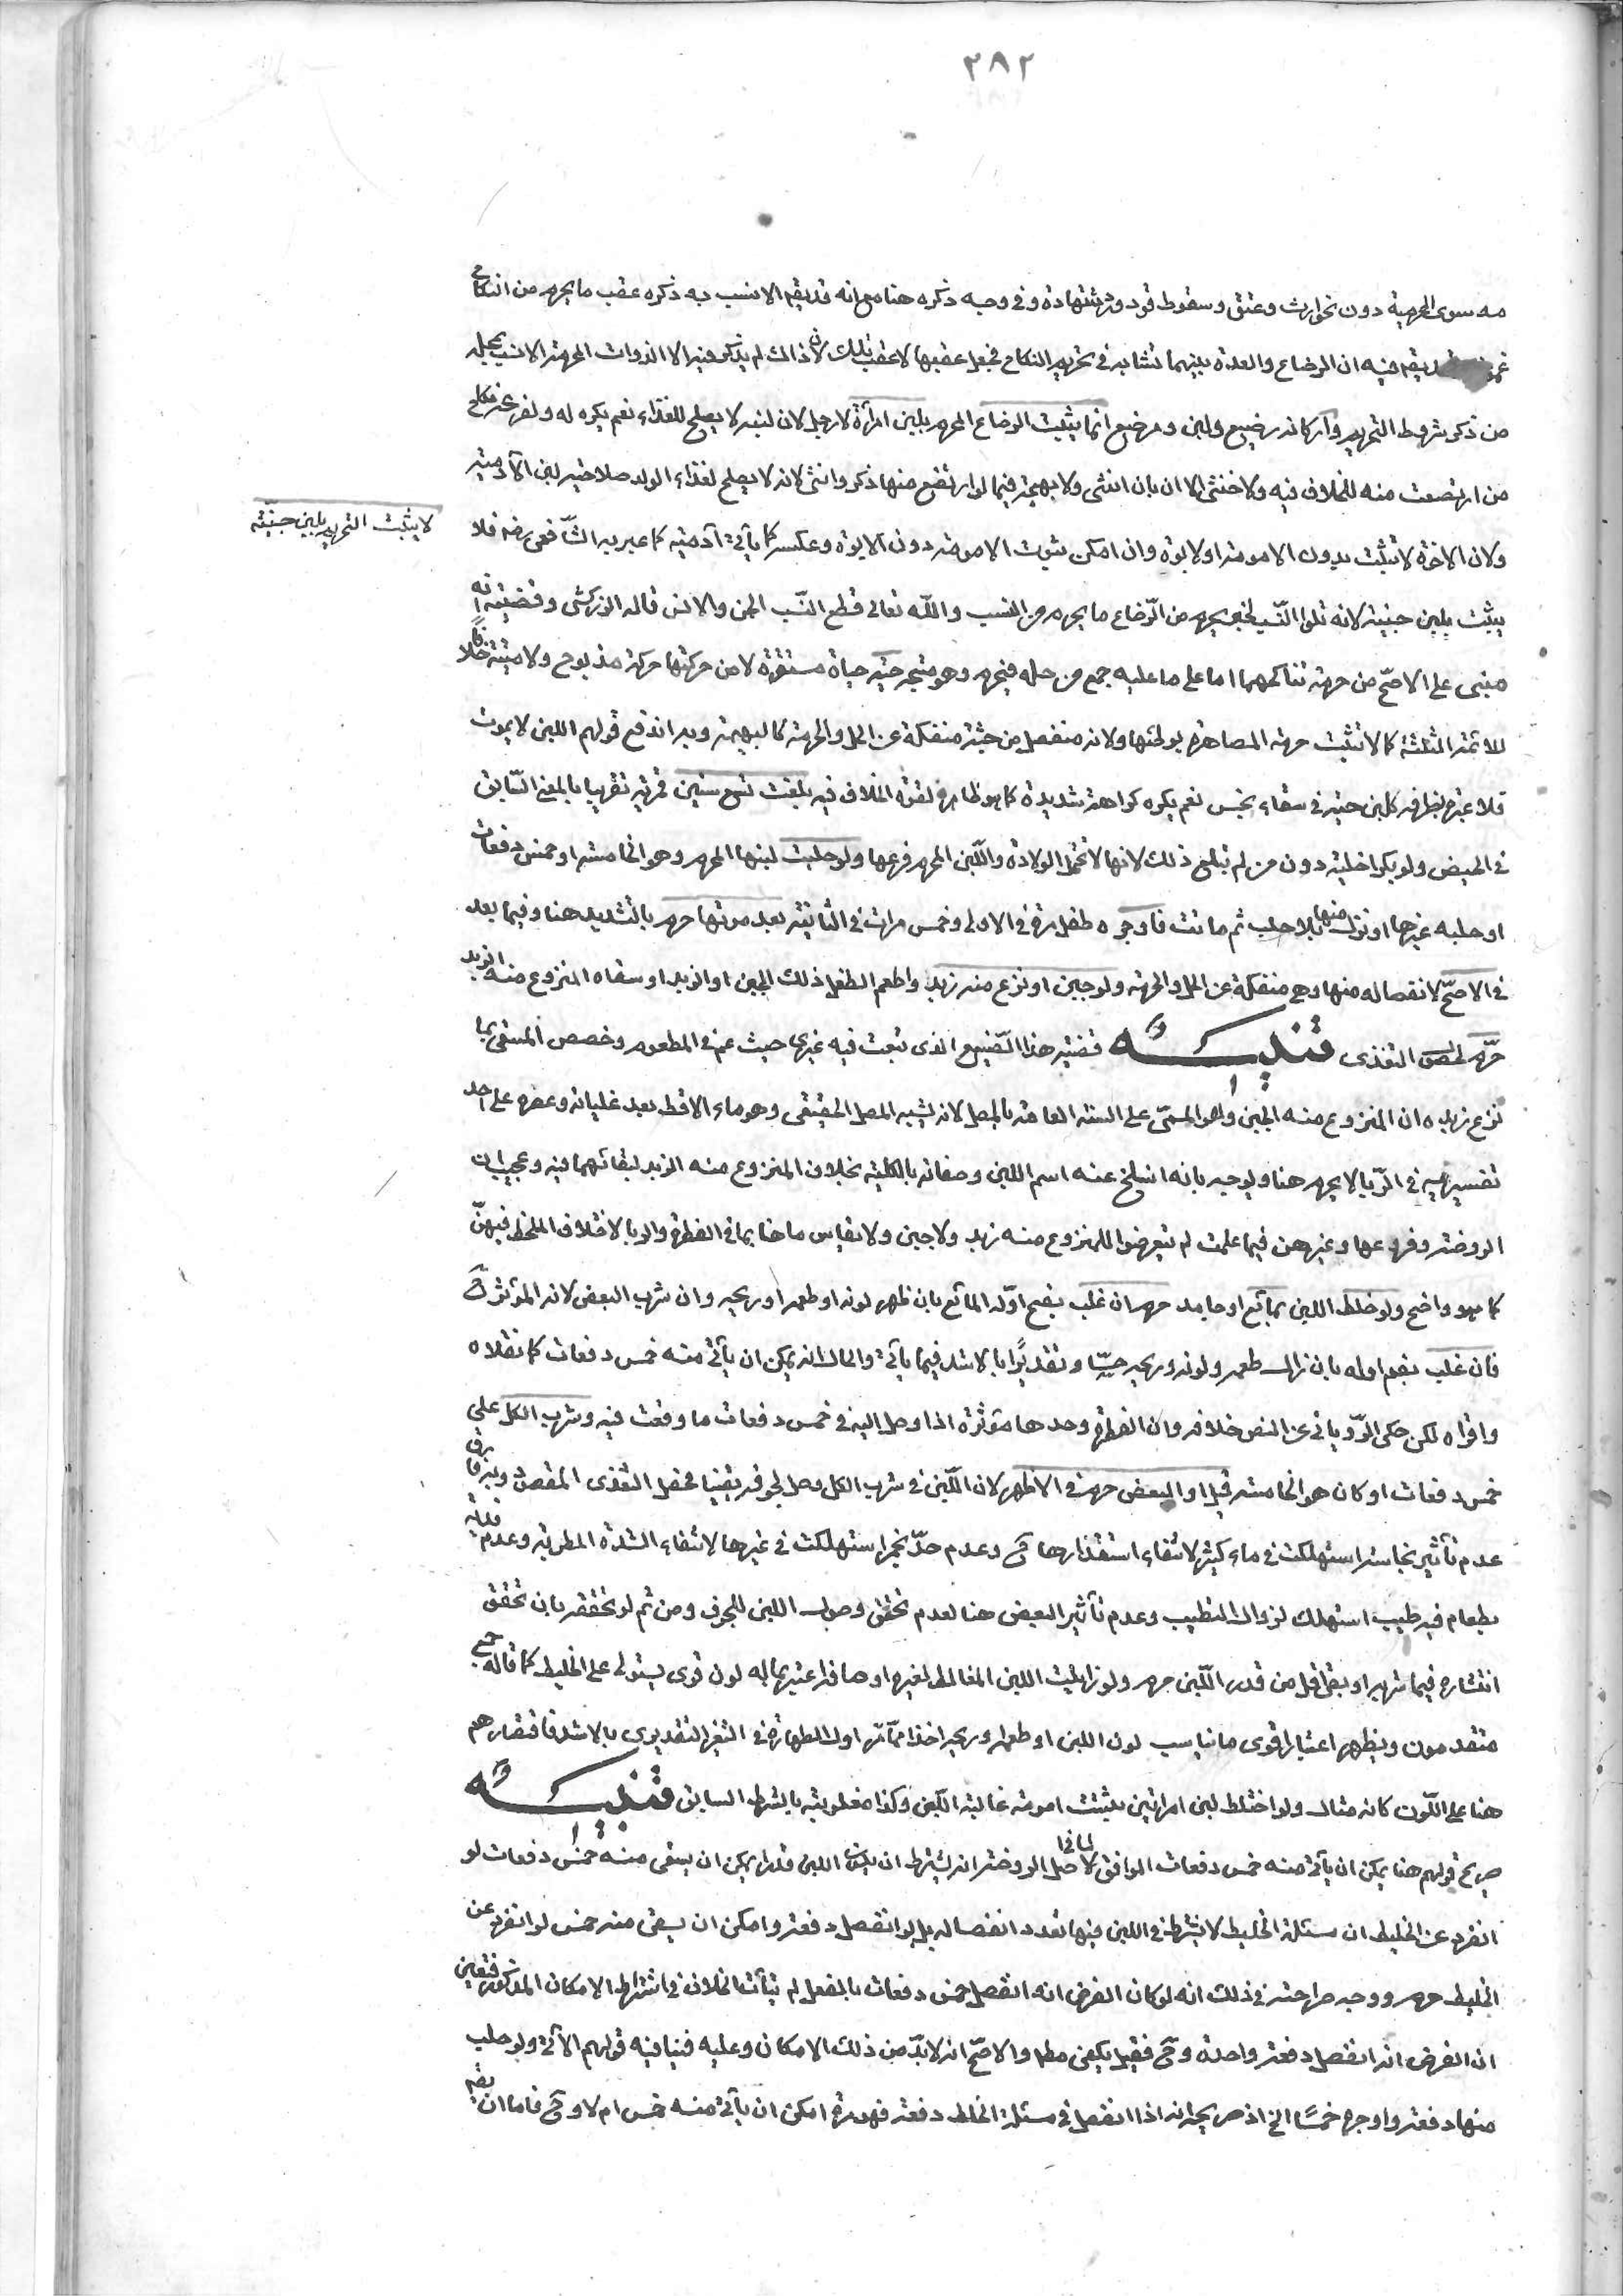 ٣٨٢
مه سوى المحرمية دون نحو ارث وعتق وسقوط قود ورد شهادة وفي وجه ذكره هنا مع انه قد يقال الانسب به ذكره عقب ما يحرم من النكاح
غموض وقد يقال فيه ان الرضاع والعدة بينهما تشابه في تحريم النكاح فجعل عقبها لا عقب تلك لان ذاك لم يذكر فيه الا الذوات المحرمة الانسب بمحله
من ذكر شروط التحريم واركانه رضيع ولبن ومرضع انما يثبت الرضاع المحرم بلبن امرأة لا رجل لان لبنه لا يصلح للغذاء نعم يكره له ولفرعه نكاح
من ارتضعت منه للخلاف فيه ولا خنثى الا ان بان انثى ولا بهيمة فيما لو ارتضع منها ذكر وانثى لانه لا يصلح لغذاء الولد صلاحية لبن الآدمية
ولان الاخوة لا تثبت بدون الامومة او الابوة وان امكن ثبوت الامومة دون الابوة وعكسه كما يأتي آدمية كما عبر به الشافعي رضه فلا
لا يثبت التحريم بلبن جنيّة
يثبت بلبن جنية لانه تلو النسب لخبر يحرم من الرّضاع ما يحرم من النسب والله تعالى قطع النّسب بين الجن والانس قاله الزركشي وقضيته انه
مبني على الاصحّ من حرمة تناكحهما اما على ما عليه جمع من حله فيحرم وهو متجه حيّة حياة مستقرة لا من حركتها حركة مذبوح ولا ميتة خلافا
للائمة الثلثة كما لا تثبت حرمة المصاهرة بوطئها ولانه منفصل من جثة منفكة عن الحل والحرمة كالبهيمة وبه اندفع قولهم اللبن لا يموت
فلا عبرة بظرفه كلبن حية في سقاء نجس نعم يكره كراهة شديدة كما هو ظاهر لقوة الخلاف فيه بلغت تسع سنين قمرية تقريبا بالمعنى السّابق
في الحيض ولو بكرا خلية دون من لم تبلغ ذلك لانها لا تحتمل الولادة واللّبن المحرم فرعها ولو حلبت لبنها المحرم وهو الخامسة او خمس دفعات
او حلبه غيرها او نزل منها بلا حلب ثم ماتت فاوجره طفل مرة في الاولى وخمس مرات في الثانية بعد موتها حرم بالتشديد هنا وفيما بعد
في الاصحّ لانفصاله منها وهي منفكة عن الحل والحرمة ولو جبن او نزع منه زبد واطعم الطفل ذلك الجبن او الزبد او سقاه المنزوع منه الزبد
حرّم لحصول التغذي تنبيه قضية هذا الصّنيع الذي تبعت فيه غيري حيث عم في المطعوم وخصص المسقى بما
نزع زبده ان المنزوع منه الجبن وهو المسمّى على السنة العامة بالمصل لانه يشبه المصل الحقيقي وهو ماء الاقط بعد غليانه وعصره على احد
تفسيريه في الرّبا لا يحرم هنا ويوجه بانه انسلخ عنه اسم اللبن وصفاته بالكلية بخلاف المنزوع منه الزبد لبقائهما فيه وعجيب ان
الروضة وفروعها وغيرهن فيما علمت لم يتعرضوا للمنزوع منه زبد ولا جبن ولا يقاس ما هنا بما في الفطرة والربا لاختلاف الملحظ فيهنّ
كما هو واضح ولو خلط اللبن بمائع او جامد حرم ان غلب بفتح اوّله المائع بان ظهر لونه او طعمه او ريحه وان شرب البعض لانه المؤثر ح
فان غلب بضم اوله بان زال طعمه ولونه وريحه حسّا وتقديرًا بالاشد فيما يأتي والحال انه يمكن ان يأتي منه خمس دفعات كما نقلاه
واقراه لكن حكى الرّوياني عن النص خلافه وان القطرة وحدها مؤثرة اذا وصل اليه في خمس دفعات ما وقعت فيه وشرب الكل على
خمس دفعات او كان هو الخامسة قيل او البعض حرم في الاظهر لان اللّبن في شرب الكل وصل لجوفه يقينا فحصل التغذي المقصود وبه فارق
عدم تأثير نجاسة استهلكت في ماء كثير لانتفاء استقذارها ح وعدم حدّ بخمر استهلكت في غيرها لانتفاء الشدة المطربة وعدم فدية
بطعام فيه طيب استهلك لزوال التطيب وعدم تأثير البعض هنا لعدم تحقق وصول اللبن للجوف ومن ثم لو تحققه بان تحقق
انتشاره فيما شربه او بقي اقل من قدر اللّبن حرم ولو زايلت اللبن المخالط لغيره اوصافه اعتبر بما له لون قوي يستولي على الخليط كما قاله جمع
متقدمون ويظهر اعتبار اقوى ما يناسب لون اللبن او طعمه او ريحه اخذا ممّا مر اول الطهارة في التغير التقديري بالاشد فاقتصارهم
هنا على اللّون كانه مثال ولو اختلط لبن امرأتين يثبت امومة غالبة اللّبن وكذا مغلوبته بالشرط السابق تنبيه
صريح قولهم هنا يمكن ان يأتي منه خمس دفعات الموافق لما في اصل الروضة انه يشترط ان يكون اللبن قدرا يمكن ان يسقى منه خمس دفعات لو
انفرد عن الخليط ان مسئلة الخليط لا يشترط في اللبن فيها تعدد انفصاله بل لو انفصل دفعة وامكن ان يسقى منه خمس لو انفرد عن
الخليط حرم ووجه صراحته في ذلك انه لو كان الفرض انه انفصل خمس دفعات بالفعل لم يتأت الخلاف في اشتراط الامكان المذكور فتعين
ان الفرض انه انفصل دفعة واحدة وح فقيل يكفي مطلقا والاصحّ انه لا بدّ من ذلك الامكان وعليه فينافيه قولهم الآتي ولو حلب
منها دفعة واوجره خمسًا الخ اذ صريحه انه اذا انفصل في مسئلة الخلط دفعة فهو مرة امكن ان يأتي منه خمس ام لا وح فاما ان يضم